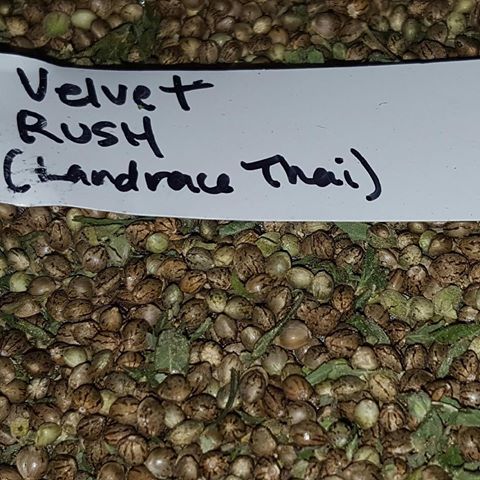 Velvet
RUSH
(Landrace Thai)